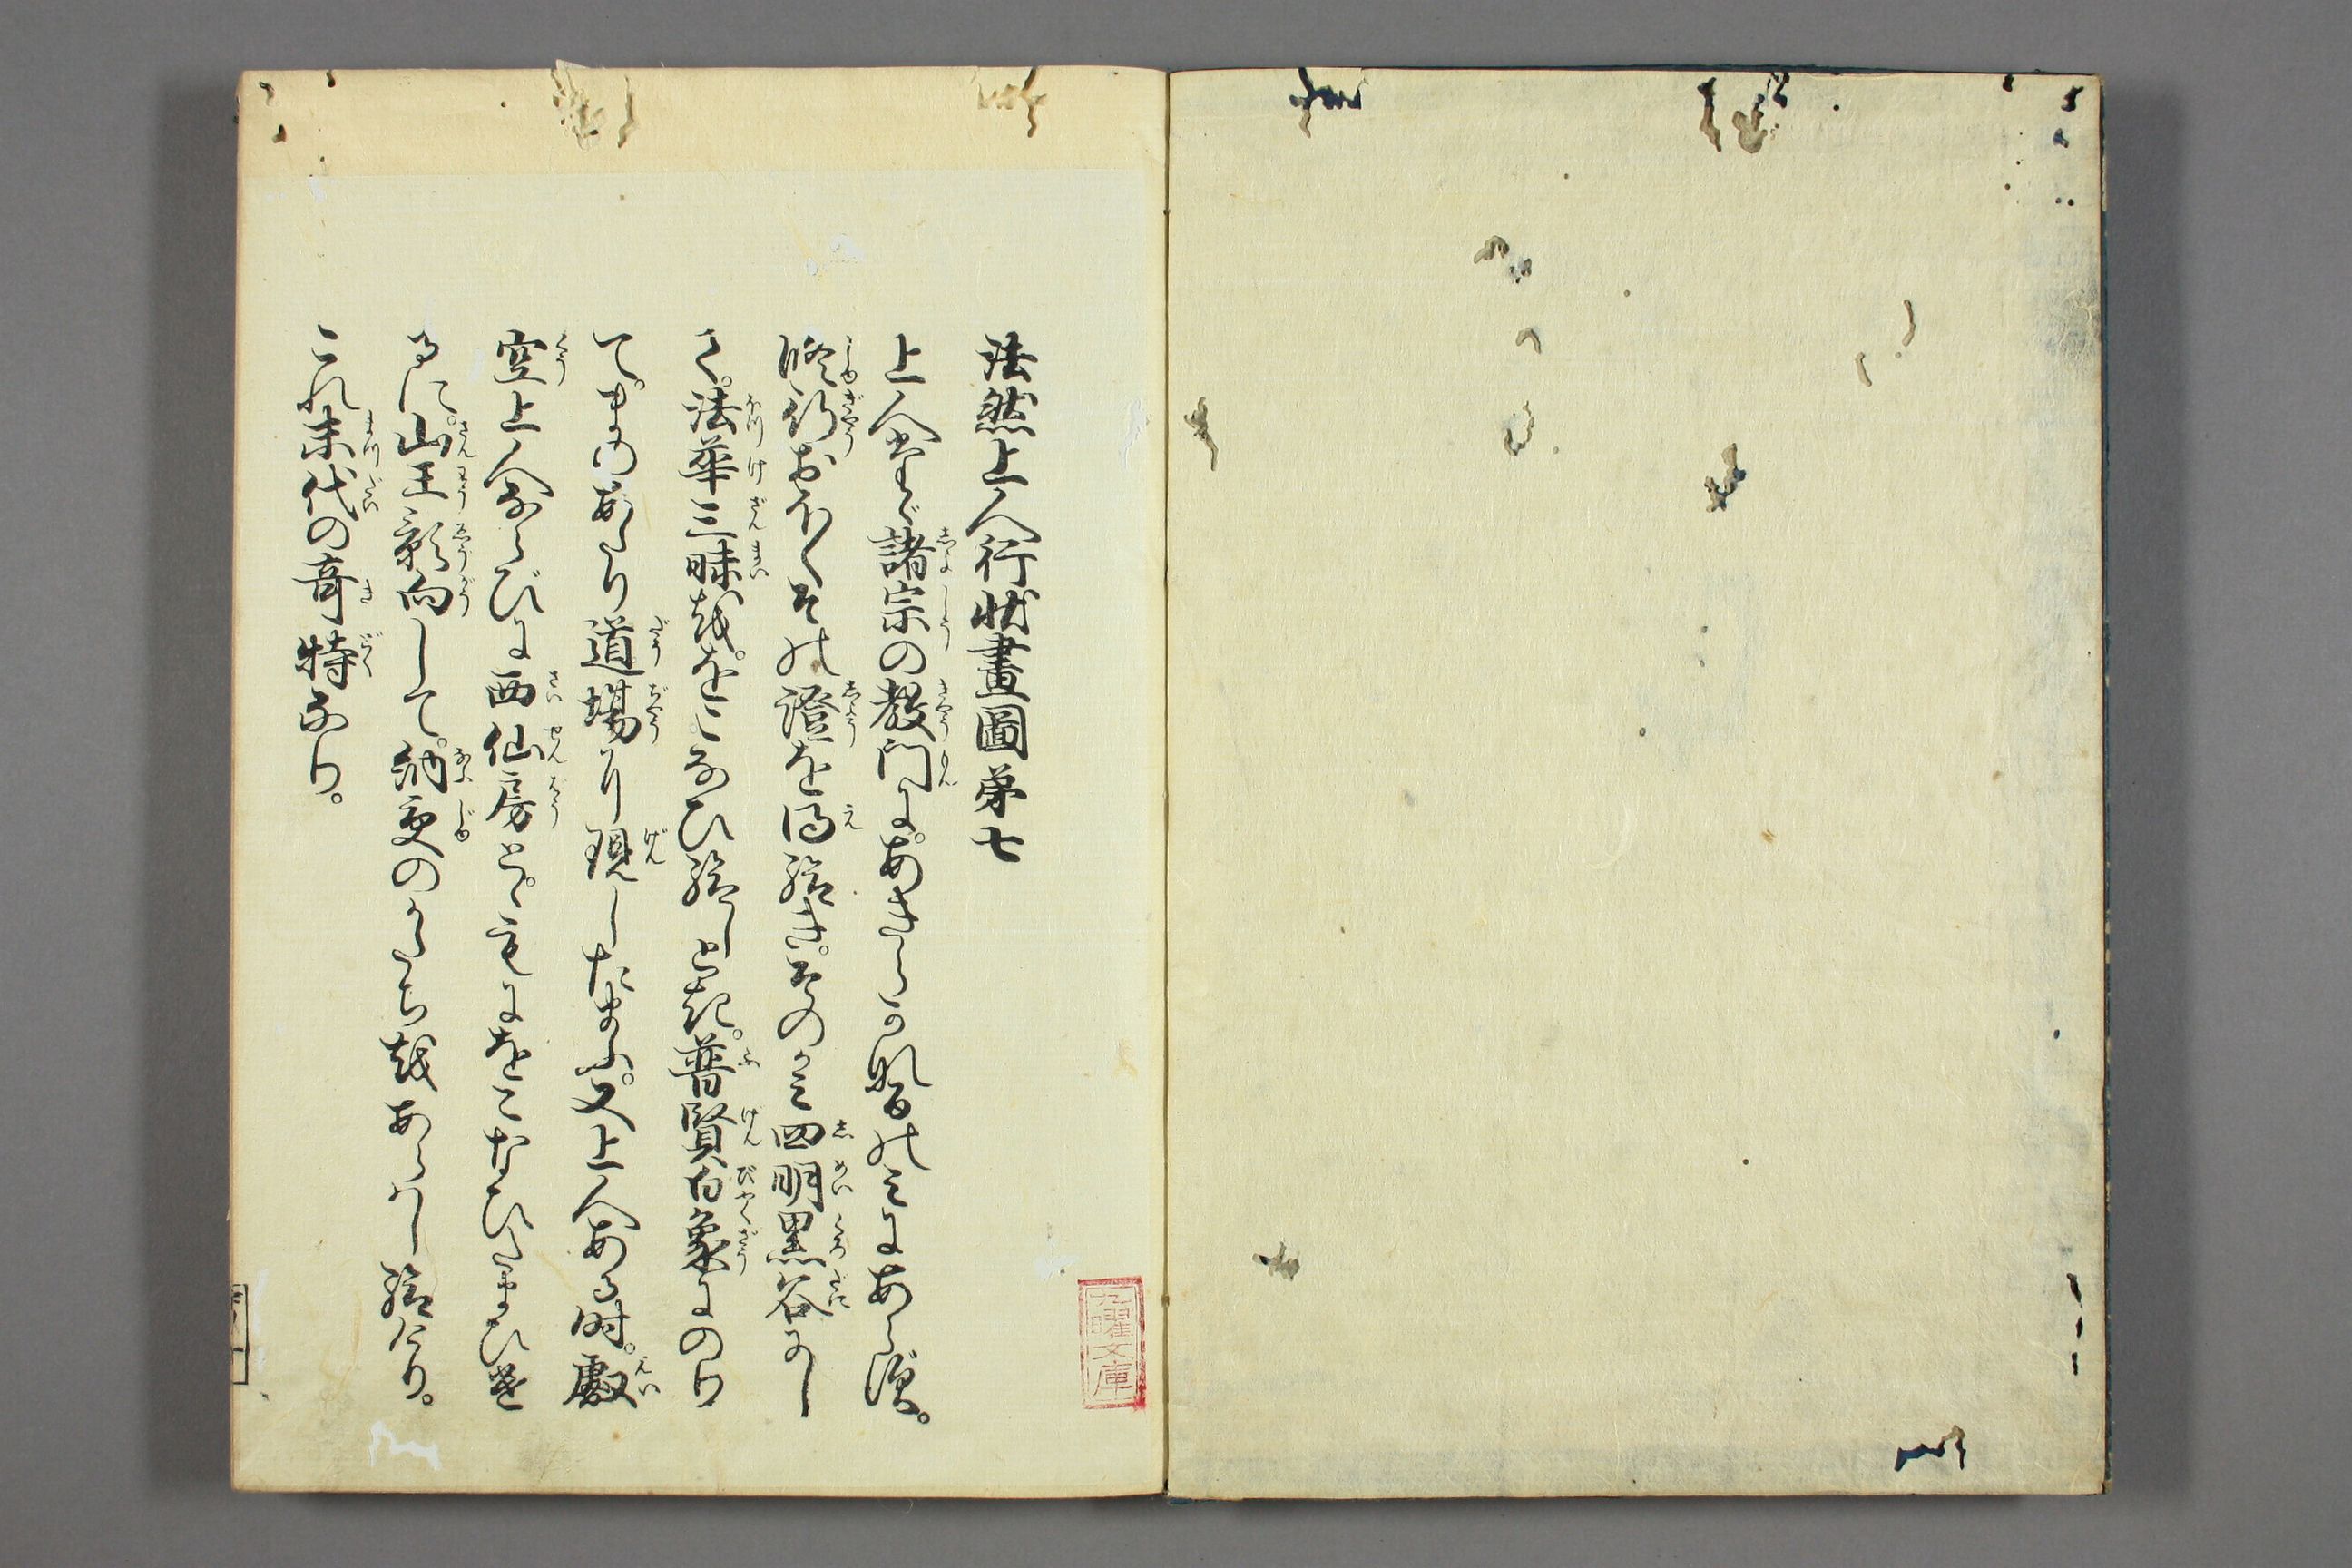 法然上人行状畫圖第七
上人たゞ諸宗の教門に。あきらかなるのみにあらず。
修行おほくその證を得給き。そのかみ四明黒谷にし
て。法華三昧を。をこなひ給しとき。普賢白象にのり
て。まのあたり道場に現したまふ。又上人ある時。叡
空上人ならびに西仙房と。ともにをこなひたまひけ
るに。山王影向して。納受のかたちをあらはし給けり。
これ末代の奇特なり。
九曜文庫